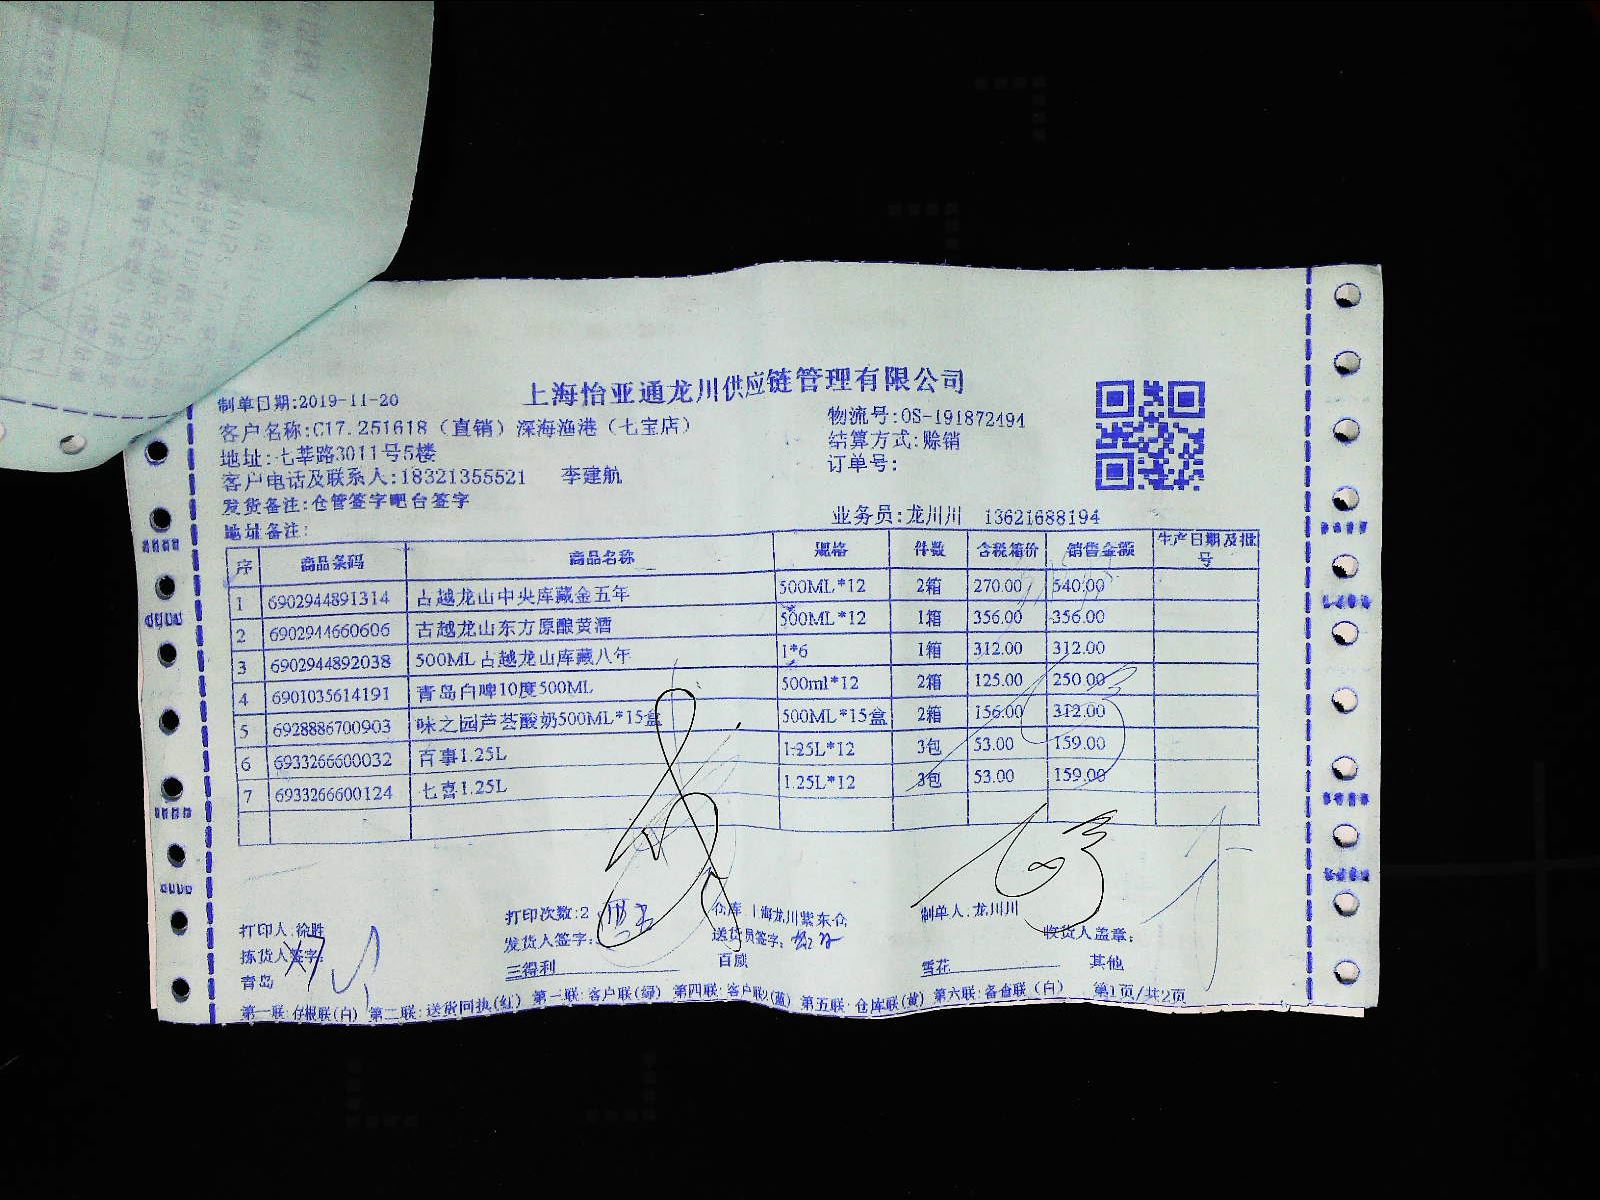 上海怡亚通龙川供应链管理有限公司
制单日期:2019-11-20
客户名称:C17.251618（直销）深海渔港（七宝店） 物流号:OS-191872494
地址:七莘路3011号5楼 结算方式:赊销
客户电话及联系人:18321355521 李建航 订单号:
发货备注:仓管签字吧台签字
地址备注: 业务员:龙川川 13621688194
序 商品条码 商品名称 规格 件数 含税箱价 销售金额 生产日期及批号
1 6902944891314 古越龙山中央库藏金五年 500ML*12 2箱 270.00 540.00
2 6902944660606 古越龙山东方原酿黄酒 500ML*12 1箱 356.00 356.00
3 6902944892038 500ML古越龙山库藏八年 1*6 1箱 312.00 312.00
4 6901035614191 青岛白啤10度500ML 500ml*12 2箱 125.00 250.00
5 6928886700903 味之园芦荟酸奶500ML*15盒 500ML*15盒 2箱 156.00 312.00
6 6933266600032 百事1.25L 1.25L*12 3包 53.00 159.00
7 6933266600124 七喜1.25L 1.25L*12 3包 53.00 159.00
打印人:徐胜 打印次数:2 仓库 上海龙川紫东仓 制单人:龙川川
拣货人签字: 发货人签字: 送货员签字: 收货人盖章:
青岛 三得利 百威 雪花 其他
第一联:存根联(白) 第二联:送货回执(红) 第一联:客户联(绿) 第四联:客户联2(蓝) 第五联:仓库联(黄) 第六联:备查联(白) 第1页/共2页